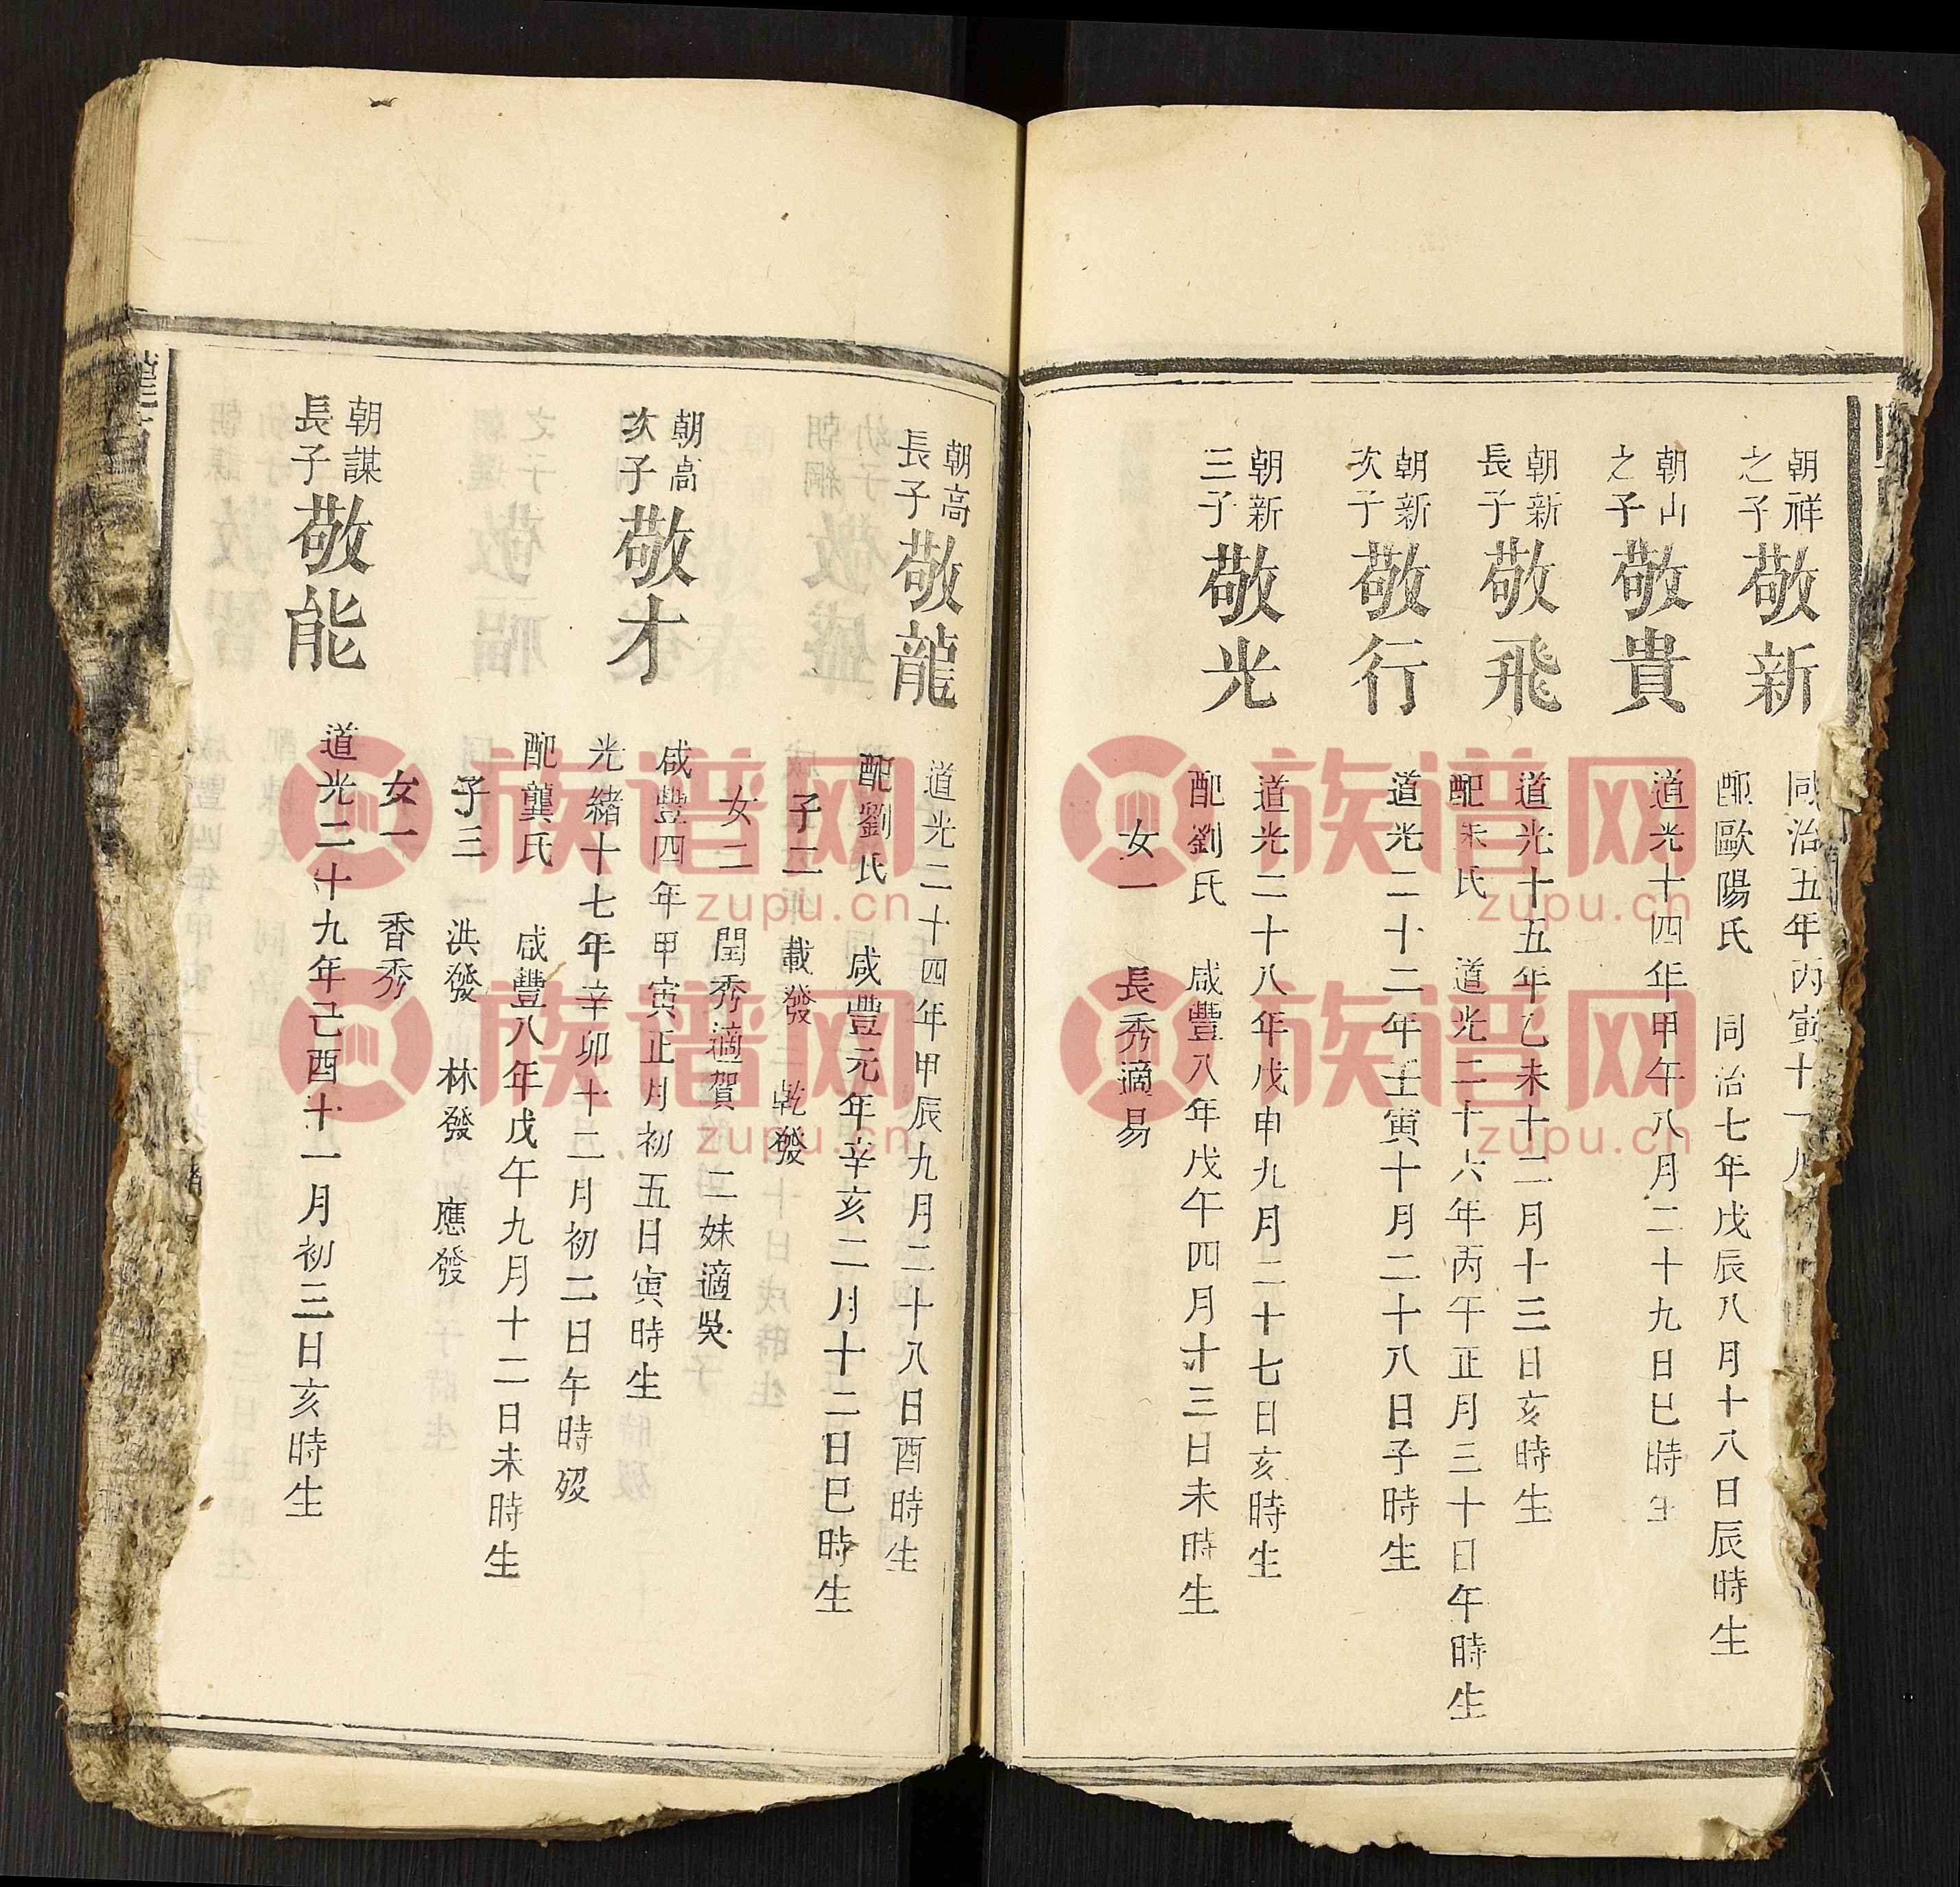 朝祥之子 敬新
同治五年丙寅十一月
配歐陽氏 同治七年戊辰八月十八日辰時生
朝山之子 敬貴
道光十四年甲午八月二十九日巳時生
朝新長子 敬飛
道光十五年乙未十二月十三日亥時生
配朱氏 道光二十六年丙午正月三十日午時生
朝新次子 敬行
道光二十二年壬寅十月二十八日子時生
朝新三子 敬光
道光二十八年戊申九月二十七日亥時生
配劉氏 咸豐八年戊午四月十三日未時生
女一 長秀適易
朝高長子 敬龍
道光二十四年甲辰九月二十八日酉時生
配劉氏 咸豐元年辛亥二月十二日巳時生
子二 載發 乾發
女二 閏秀適賀 二妹適吳
朝高次子 敬才
咸豐四年甲寅正月初五日寅時生
光緒十七年辛卯十二月初二日午時歿
配龔氏 咸豐八年戊午九月十二日未時生
子三 洪發 林發 應發
女一 香秀
朝謀長子 敬能
道光二十九年己酉十一月初三日亥時生
族谱网
zupu.cn
族谱网
zupu.cn
族谱网
zupu.cn
族谱网
zupu.cn